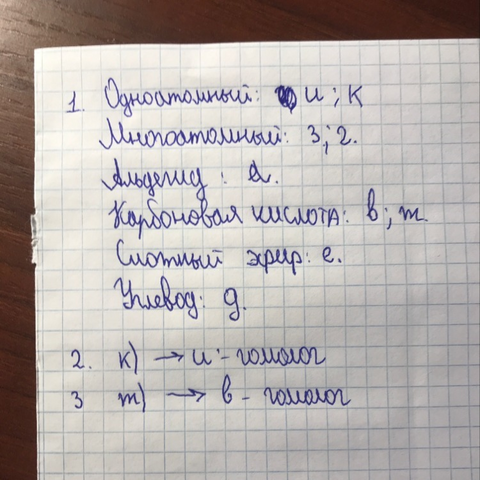 1. Одноатомный: и; к
Многоатомный: З; г.
Альдегид: а.
Карбоновая кислота: в; т.
Сложный эфир: е.
Углевод: д.
2. к) → и - гомолог
3 т) → в - гомолог